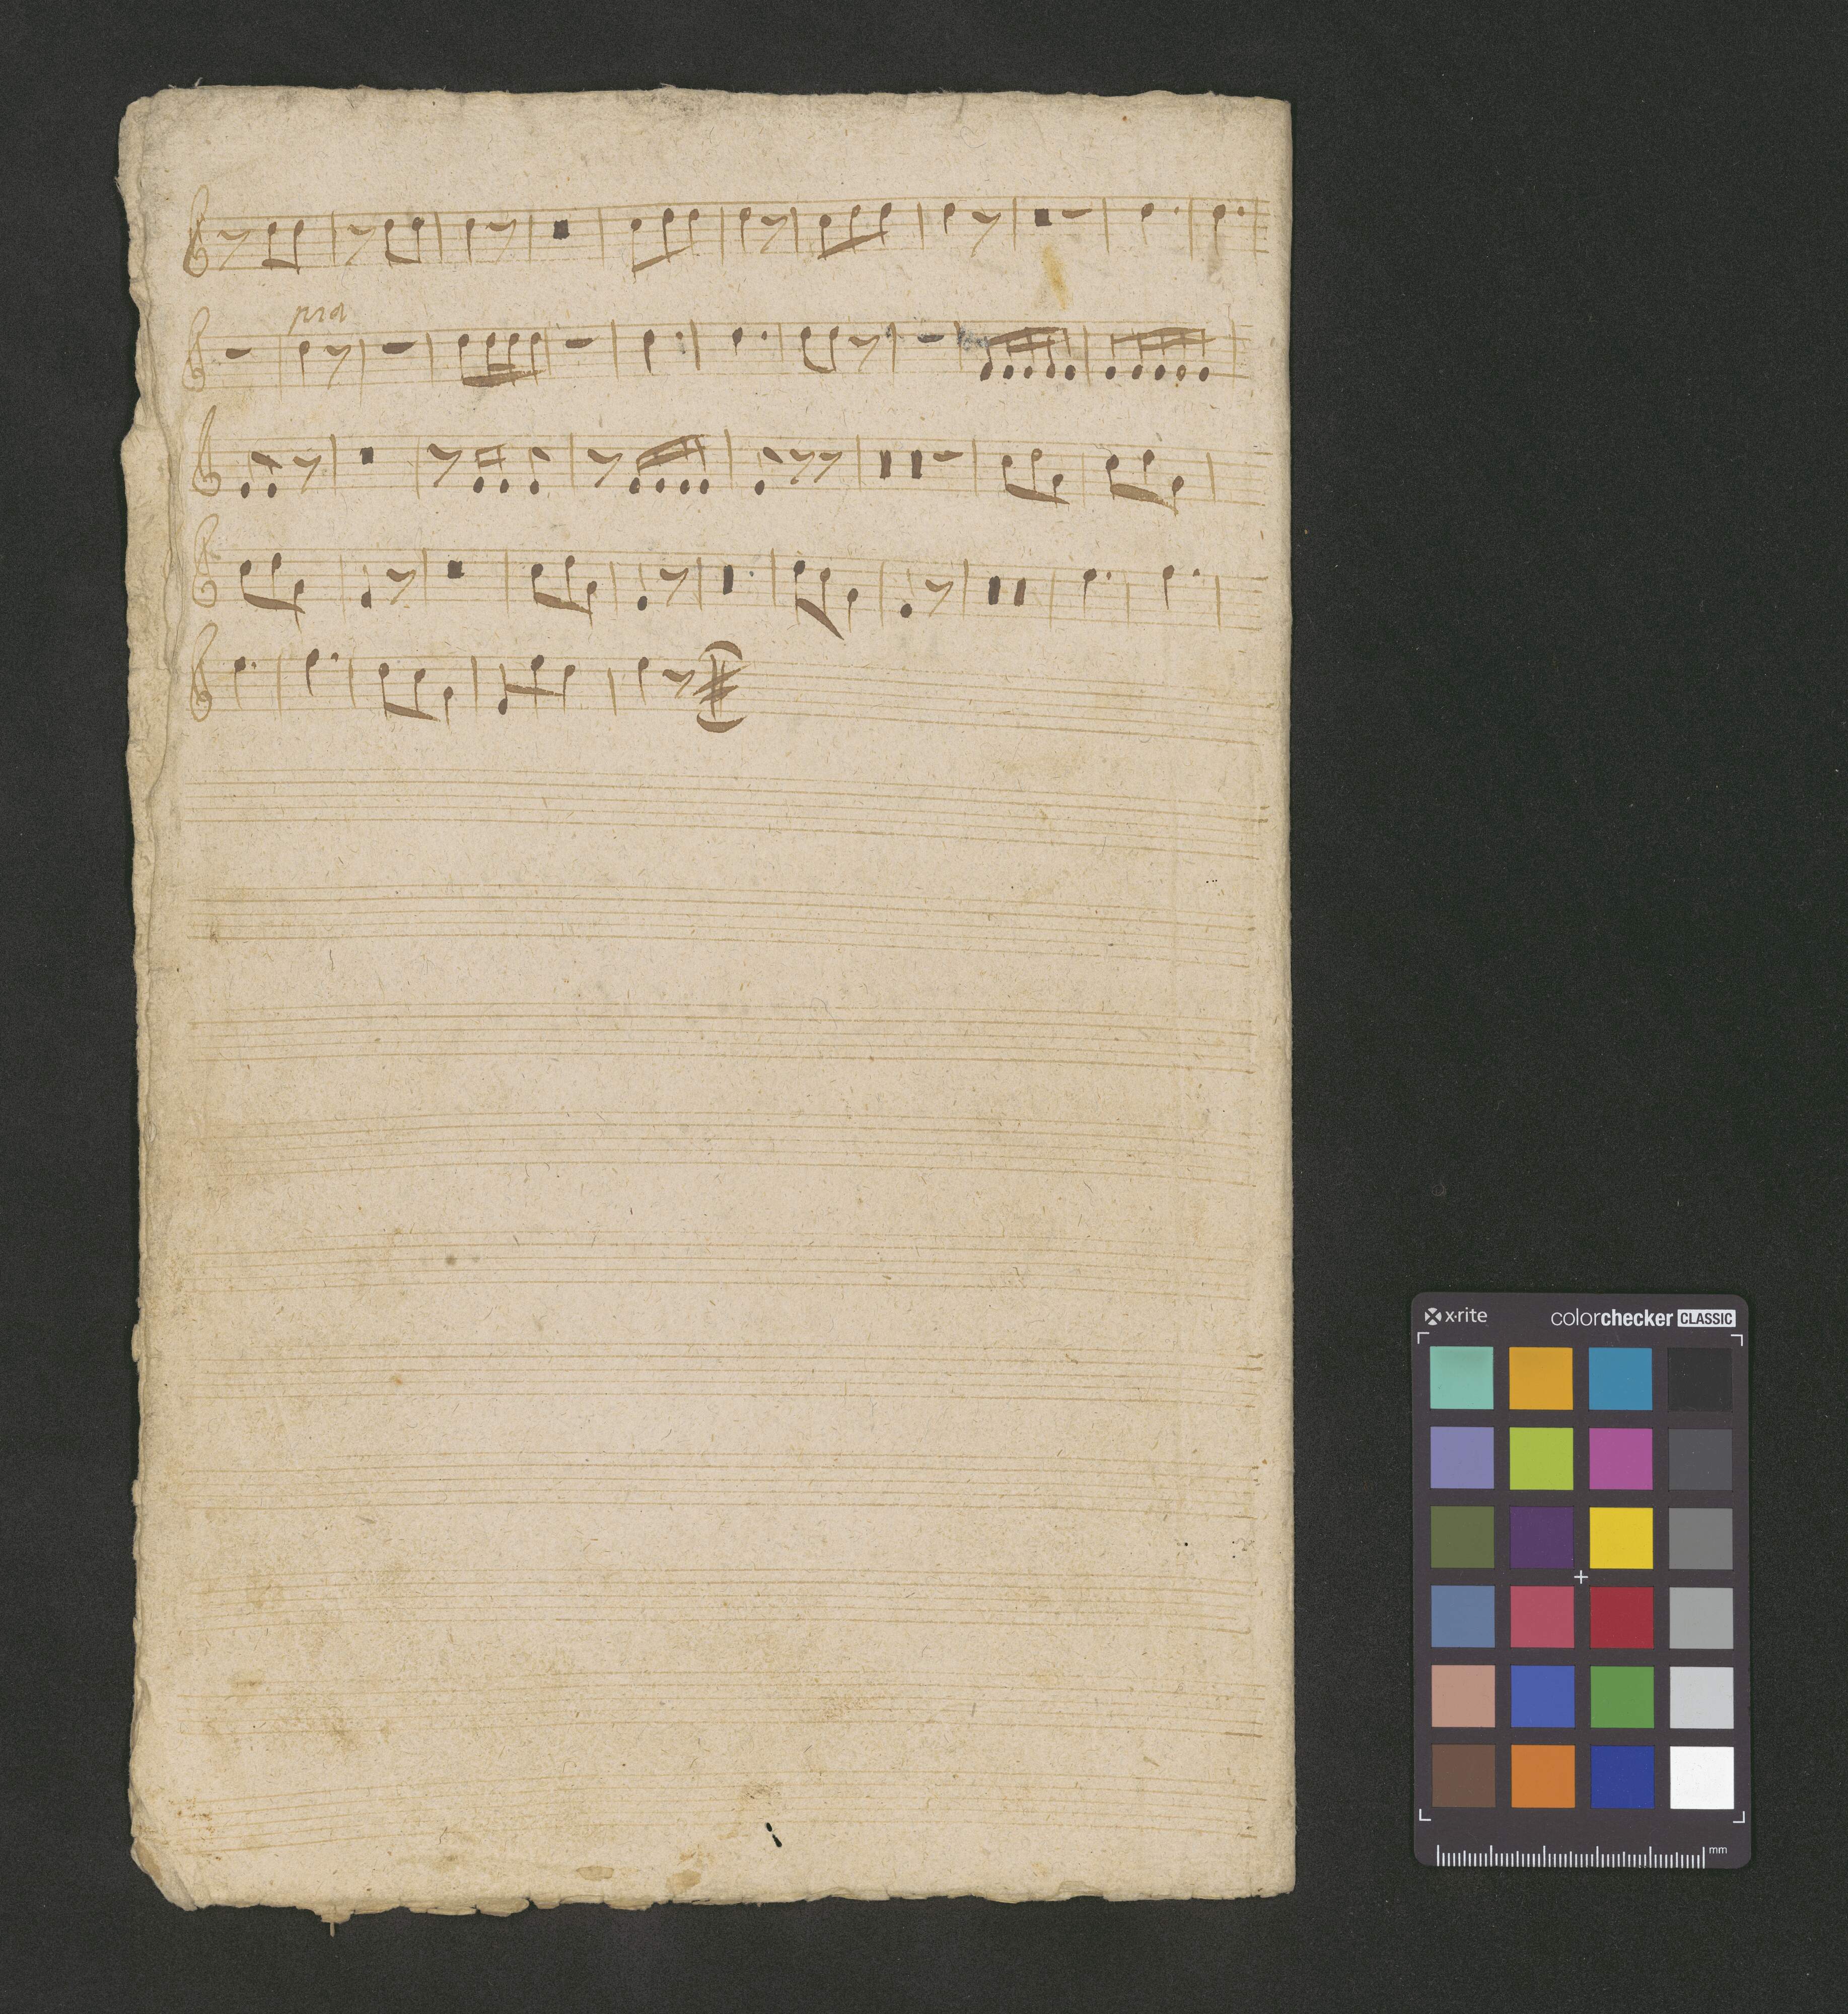 pia
x-rite
colorchecker CLASSIC
mm